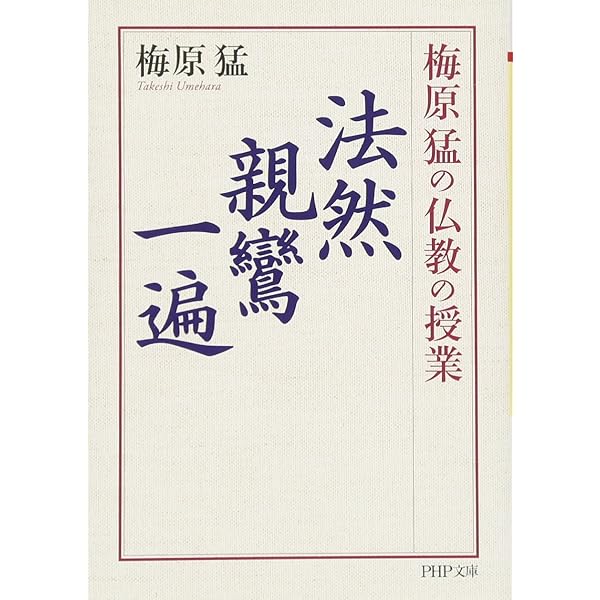 梅原猛の仏教の授業
法然
親鸞
一遍
梅原 猛
Takeshi Umehara
PHP文庫